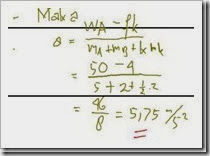 - Maka
a = WA - fk / mA + mB + k mk
= 50 - 4 / 5 + 2 + 1/2 . 2
= 46 / 8 = 5,75 m/s²